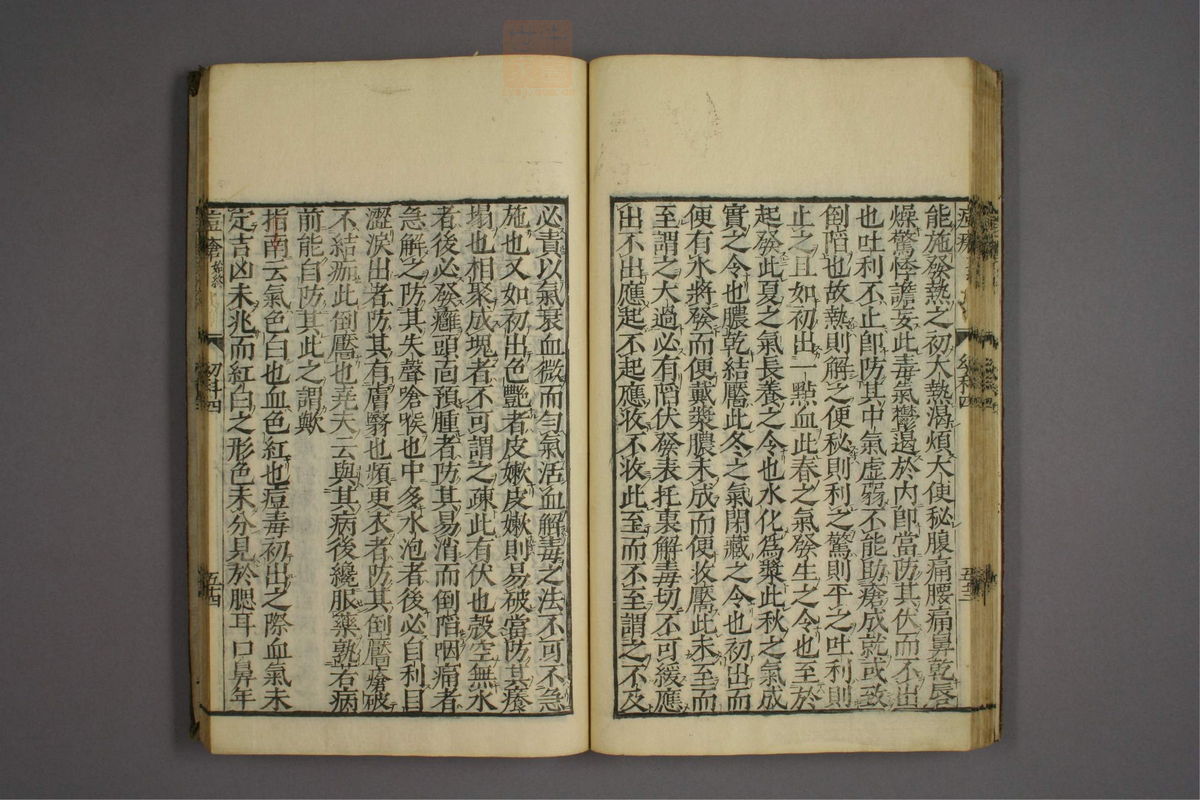 能施發熱之初大熱渴煩大便秘腹痛腰痛鼻乾唇
燥驚悸譫妄此毒氣鬱遏於內卽當防其伏而不出
也吐利不止卽防其中氣虛弱不能助瘡成就或致
倒陷也故熱則解之便秘則利之驚則平之吐利則
止之且如初出一點血此春之氣發生之令也至於
起發此夏之氣長養之令也水化爲漿此秋之氣成
實之令也膿乾結靨此冬之氣閉藏之令也初出而
便有水將發而便戴漿膿未成而便收靨此未至而
至謂之大過必有陷伏發表托裏解毒切不可緩應
出不出應起不起應收不收此至而不至謂之不及
必責以氣衰血微而勻氣活血解毒之法不可不急
施也又如初出色艷者皮嫩皮嫩則易破當防其癢
塌也相聚成塊者不可謂之疎此有伏也殼空無水
者後必發癰頭面預腫者防其易消而倒陷咽痛者
急解之防其失聲嗆喉也中多水泡者後必自利目
澀淚出者防其有膚翳也煩更衣者防其倒靨瘡破
不結痂此倒靨也堯夫云與其病後纔服藥孰若病
前能自防其此之謂歟
指南云氣色白也血色紅也痘毒初出之際血氣未
定吉凶未兆而紅白之形色未分見於腮耳口鼻年
痘瘡 始終
幼科四
五十四